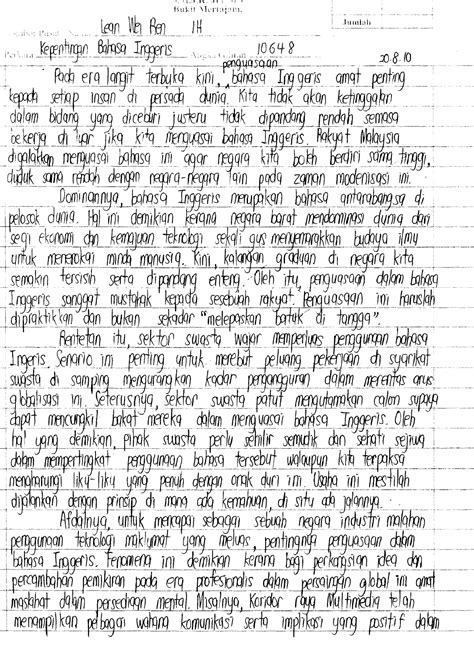 Bukit Mertajam.
Jumlah
Lean Wei Ren 1H
Kepentingan Bahasa Inggeris 10648
20.8.10
penguasaan
Pada era langit terbuka kini, bahasa Inggeris amat penting
kepada setiap insan di persada dunia. Kita tidak akan ketinggalan
dalam bidang yang diceburi justeru tidak dipandang rendah semasa
bekerja di luar jika kita menguasai bahasa Inggeris. Rakyat Malaysia
digalakkan menguasai bahasa ini agar negara kita boleh berdiri sama tinggi,
duduk sama rendah dengan negara-negara lain pada zaman modenisasi ini.
Dominannya, bahasa Inggeris merupakan bahasa antarabangsa di
pelosok dunia. Hal ini demikian kerana negara barat mendominasi dunia dari
segi ekonomi dan kemajuan teknologi sekali gus menyemarakkan budaya ilmu
untuk menerokai minda manusia. Kini, kalangan graduan di negara kita
semakin tersisih serta dipandang enteng. Oleh itu, penguasaan dalam bahasa
Inggeris sanggat mustahak kepada sesebuah rakyat. Penguasaan ini haruslah
dipraktikkan dan bukan sekadar "melepaskan batuk di tangga".
Rentetan itu, sektor swasta wajar memperluas penggunaan bahasa
Ingeris. Senario ini penting untuk merebut peluang pekerjaan di syarikat
swasta di samping mengurangkan kadar pengangguran dalam merentas arus
globalisasi ini. Seterusnya, sektor swasta patut mengutamakan calon supaya
dapat mencungkil bakat mereka dalam menguasai bahasa Inggeris. Oleh
hal yang demikian, pihak swasta perlu sehilir semudik dan sehati sejiwa
dalam mempertingkat penggunaan bahasa tersebut walaupun kita terpaksa
mengharungi liku-liku yang penuh dengan onak duri ini. Usaha ini mestilah
dijalankan dengan prinsip di mana ada kemahuan, di situ ada jalannya.
Afdalnya, untuk mencapai sebagai sebuah negara industri malahan
penggunaan teknologi maklumat yang meluas, pentingnya penguasaan dalam
bahasa Inggeris. Fenomena ini demikian kerana bagi perkongsian idea dan
percambahan pemikiran pada era profesionalis dalam persaingan global ini amat
maslahat dalam persediaan mental. Misalnya, Koridor raya Multimedia telah
menampilkan pelbagai wahana komunikasi serta implikasi yang positif dalam